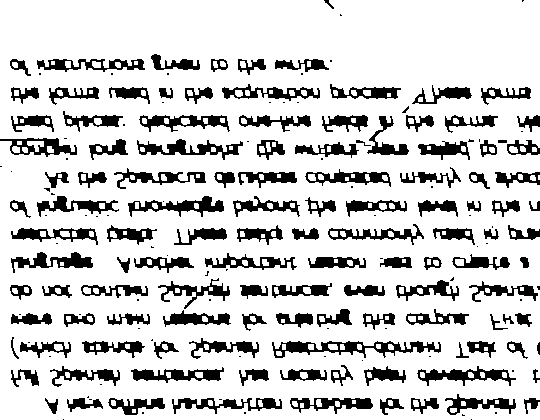 A new offline hand-written database for the Spanish
full Spanish sentences, has recently been developed: t
(which stands for Spanish Restricted-domain Task of C
were two main reasons for creating this corpus. First
do not contain Spanish sentences, even though Spanish
language. Another important reason was to create a
restricted tasks. These tasks are commonly used in prac
of linguistic knowledge beyond the lexicon level in the r
As the Spartacus database consisted mainly of short
contain long paragraphs, the writers were asked to copy
fixed places: dedicated one-line fields in the forms.
the forms used in the acquisition process. These forms
of instructions given to the writer.